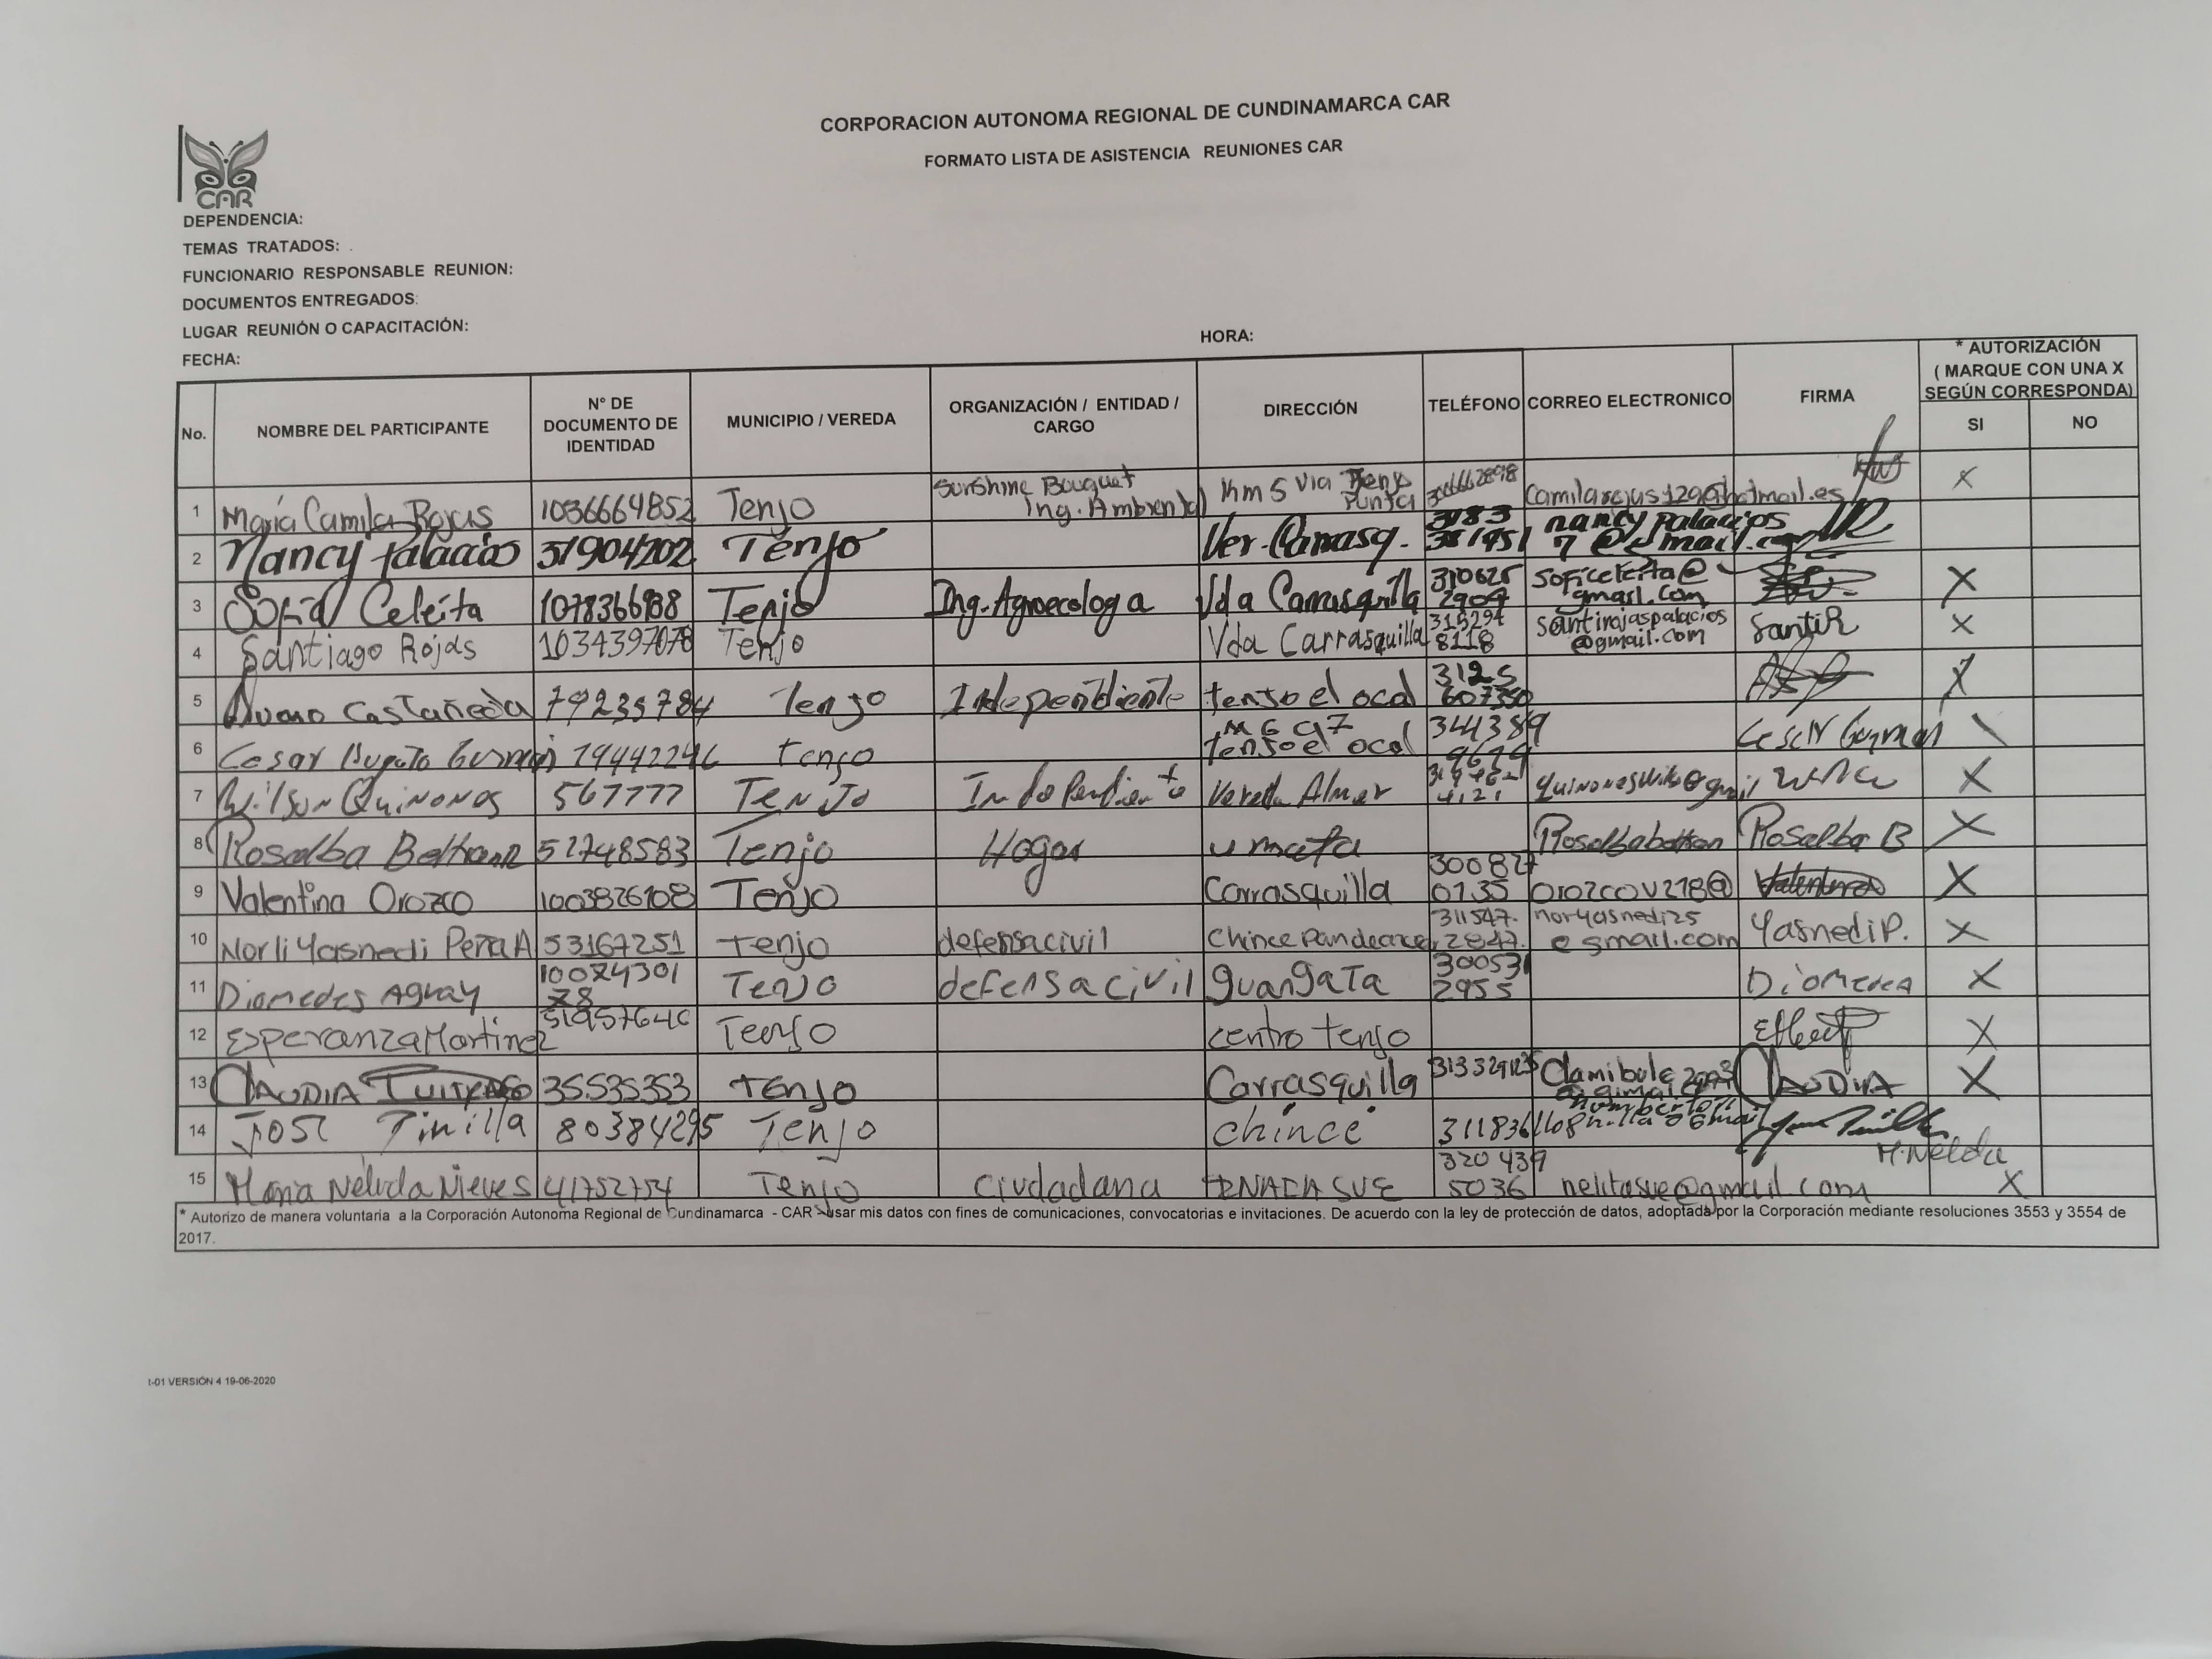 CORPORACION AUTONOMA REGIONAL DE CUNDINAMARCA CAR
FORMATO LISTA DE ASISTENCIA REUNIONES CAR
CAR
DEPENDENCIA:
TEMAS TRATADOS: .
FUNCIONARIO RESPONSABLE REUNION:
DOCUMENTOS ENTREGADOS:
LUGAR REUNIÓN O CAPACITACIÓN:
HORA:
FECHA:
No. NOMBRE DEL PARTICIPANTE N° DE DOCUMENTO DE IDENTIDAD MUNICIPIO / VEREDA ORGANIZACIÓN / ENTIDAD / CARGO DIRECCIÓN TELÉFONO CORREO ELECTRONICO FIRMA * AUTORIZACIÓN ( MARQUE CON UNA X SEGÚN CORRESPONDA) SI NO
1 María Camila Rojas 1036664852 Tenjo Sunshine Bouquet Ing. Ambiental Km 5 Via Tenjo Punta camilarojas129@hotmail.es X
2 Nancy Palacios 51904202 Tenjo Ver. Carrasq. 3183 381951 nancy palacios 7 @
3 Sofia Celeita Tenjo Ing. Agroecologa Vda Carrasquilla 310625 2904 soficeleita@ gmail.com X
4 Santiago Rojas 1034397078 Tenjo Vda Carrasquilla 315294 8118 santirojaspalacios @gmail.com SantiR X
5 Castañeda 79235784 Tenjo Independiente tenjo el ocal 3125 607350 X
6 Cesar Guzman 19442246 tenjo tenjo el ocal 344389 Cesar Guzman
7 Wilson Quinones 567777 Tenjo Independiente Vereda X
8 Rosalba Beltran 52748583 Tenjo Hogar umata Rosalba B X
9 Valentina Orozco 1003826108 Tenjo Carrasquilla 300827 0735 orozcov218@ X
10 Norli Yasnedi Peña A 53167251 Tenjo defensa civil Chince 311547. 2847. noryasnedi25 @gmail.com Yasnedi P. X
11 Diomedes Tenjo defensa civil guangata 300531 2955 X
12 Esperanza Martinez Tenjo centro tenjo X
13 CLAUDIA 35.535353 tenjo Carrasquilla CLAUDIA X
14 José Pinilla 80384295 Tenjo chince
15 Maria Nelida Nieves 41752754 Tenjo ciudadana 320 439 5036 nelitasue@gmail.com M. Nelda X
* Autorizo de manera voluntaria a la Corporación Autonoma Regional de Cundinamarca - CAR usar mis datos con fines de comunicaciones, convocatorias e invitaciones. De acuerdo con la ley de protección de datos, adoptada por la Corporación mediante resoluciones 3553 y 3554 de
2017.
t-01 VERSIÓN 4 19-06-2020